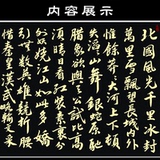 内容展示
北國風光千里冰封
萬里雪飄望長城內外
惟餘莽莽大河上下頓
失滔滔山舞銀蛇原
馳蠟象欲與天公試比高
須晴日看紅裝素裹分
外妖嬈江山如此多嬌
引無數英雄競折腰
惜秦皇漢武略輸文